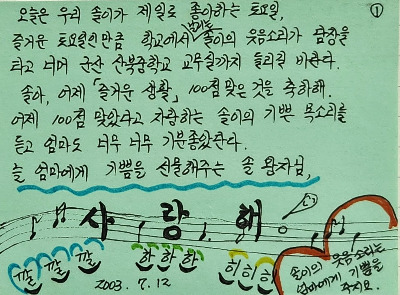 ①
오늘은 우리 솔이가 제일로 좋아하는 토요일,
즐거운 토요일인만큼 학교에서 부르는 솔이의 웃음소리가 담장을
타고 너머 군산 산북중학교 교무실까지 들리길 바란다.
솔아, 어제 「즐거운 생활」 100점 맞은 것을 축하해.
어제 100점 맞았다고 자랑하는 솔이의 기쁜 목소리를
듣고 엄마도 너무 너무 기분좋았단다.
늘 엄마에게 기쁨을 선물해주는 솔 왕자님,
사랑해
깔 깔 깔 하 하 하 히 히 히
솔이의 웃음소리는
엄마에게 기쁨을
주지요.
2003. 7. 12